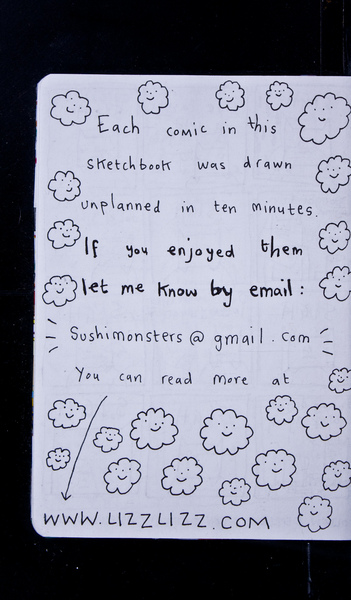 Each comic in this
sketchbook was drawn
unplanned in ten minutes.
If you enjoyed them
let me know by email:
Sushimonsters@gmail.com
You can read more at
WWW.LIZZLIZZ.COM